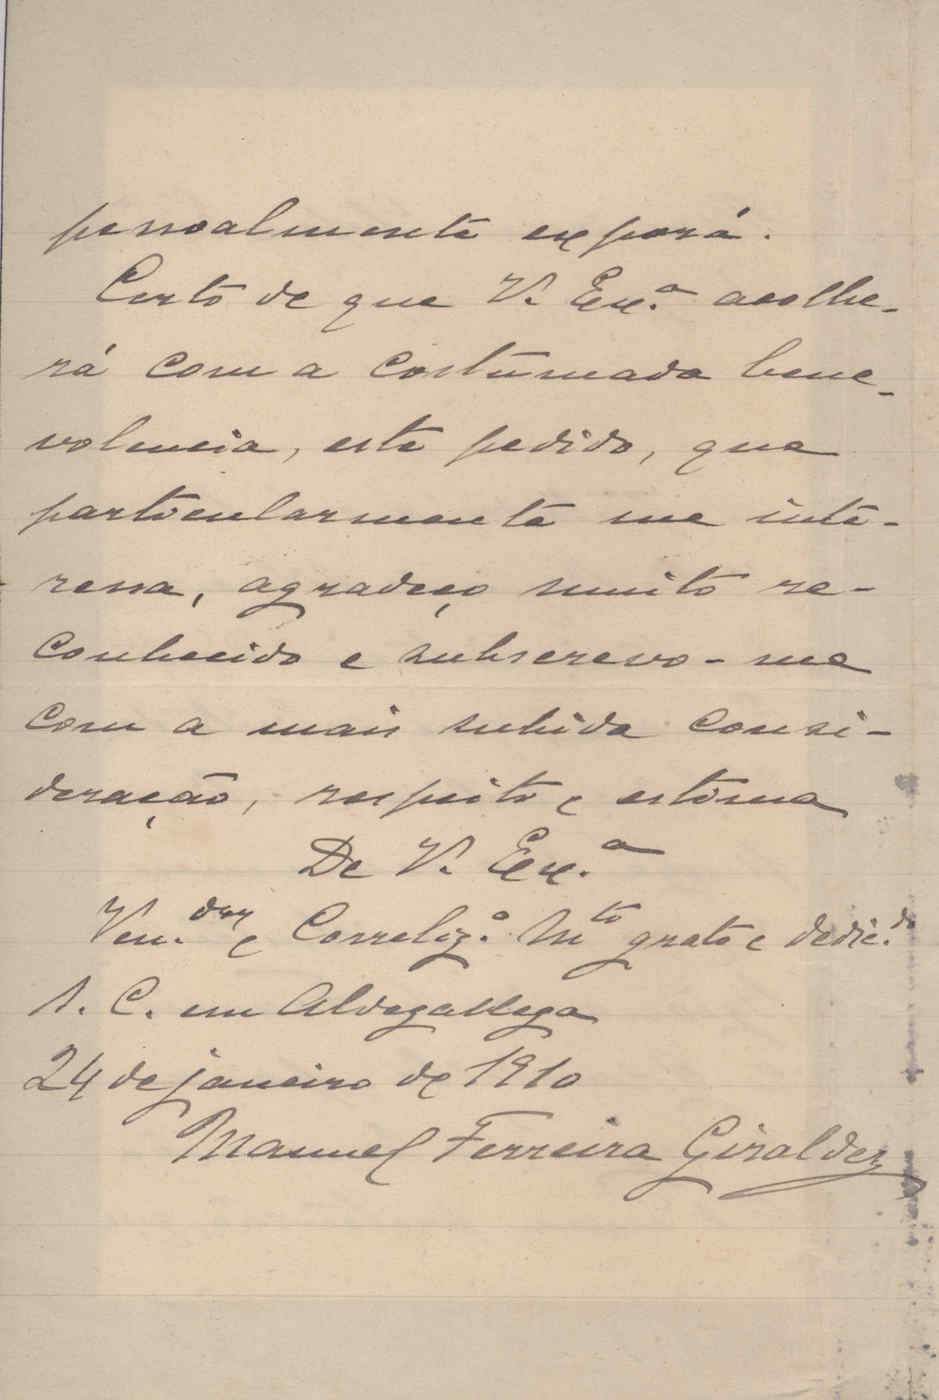 pessoalmente exporá.
Certo de que V. Ex.ª acolhe-
rá com a costumada bene-
volencia, este pedido, que
particularmente me inte-
ressa, agradeço muito re-
conhecido e subscrevo-me
com a mais subida consi-
deração, respeito e estima
De V. Ex.ª
Ven.dor e Correlig.º M.to grato e dedic.do
S. C. em Aldegallega
24 de janeiro de 1910
Manuel Ferreira Giraldez